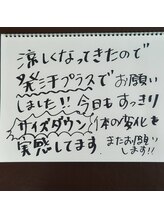 涼しくなってきたので
発汗プラスでお願い
しました!!今日もすっきり
サイズダウン体の変化を
実感してます。またお願い
します!!